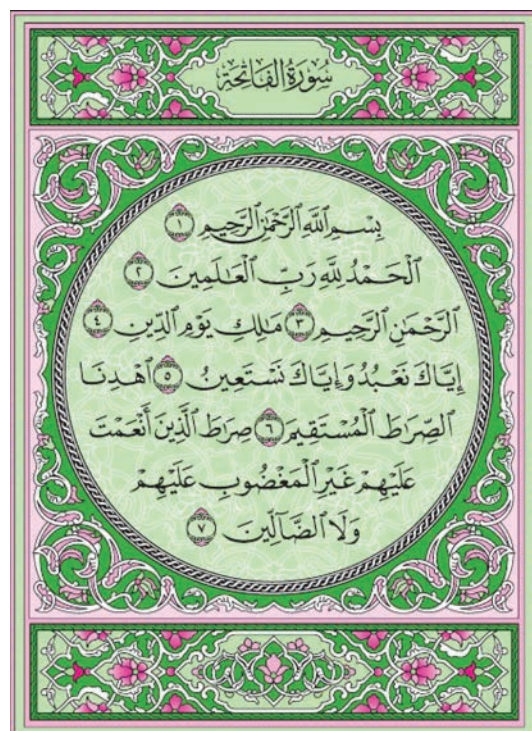 سُورَةُ الفَاتِحَة
بِسۡمِ ٱللَّهِ ٱلرَّحۡمَٰنِ ٱلرَّحِيمِ ١
ٱلۡحَمۡدُ لِلَّهِ رَبِّ ٱلۡعَٰلَمِينَ ٢
ٱلرَّحۡمَٰنِ ٱلرَّحِيمِ ٣ مَٰلِكِ يَوۡمِ ٱلدِّينِ ٤
إِيَّاكَ نَعۡبُدُ وَإِيَّاكَ نَسۡتَعِينُ ٥ ٱهۡدِنَا
ٱلصِّرَٰطَ ٱلۡمُسۡتَقِيمَ ٦ صِرَٰطَ ٱلَّذِينَ أَنۡعَمۡتَ
عَلَيۡهِمۡ غَيۡرِ ٱلۡمَغۡضُوبِ عَلَيۡهِمۡ
وَلَا ٱلضَّآلِّينَ ٧